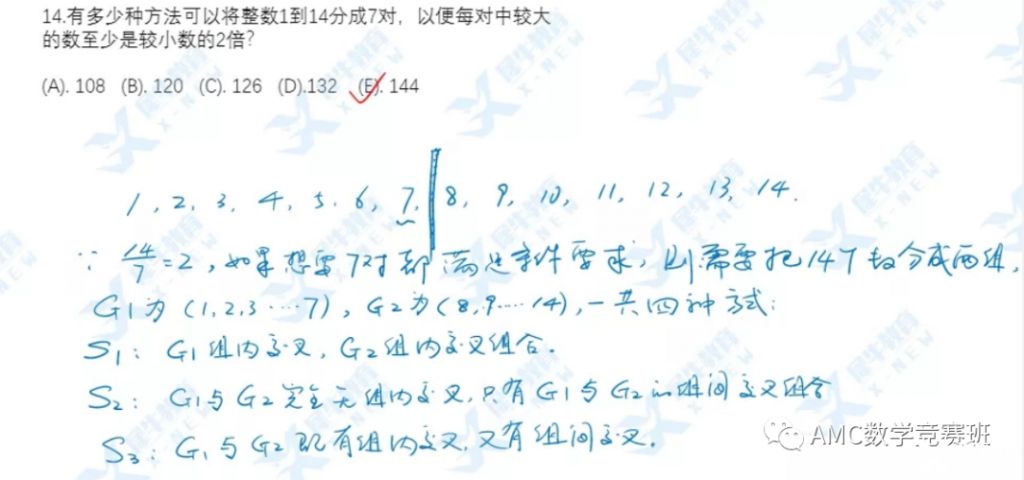 14.有多少种方法可以将整数1到14分成7对，以便每对中较大
的数至少是较小数的2倍?
(A). 108 (B). 120 (C). 126 (D).132 (E). 144
1, 2, 3, 4, 5, 6, 7, 8, 9, 10, 11, 12, 13, 14.
∵ 14/7=2，如果想要7对都满足条件要求，则需要把14个数分成两组，
G1为(1,2,3……7)，G2为(8,9……14)，一共四种方式:
S1: G1组内交叉，G2组内交叉组合.
S2: G1与G2完全无组内交叉，只有G1与G2的组间交叉组合
S3: G1与G2既有组内交叉，又有组间交叉.
AMC数学竞赛班
犀牛教育
X-NEW